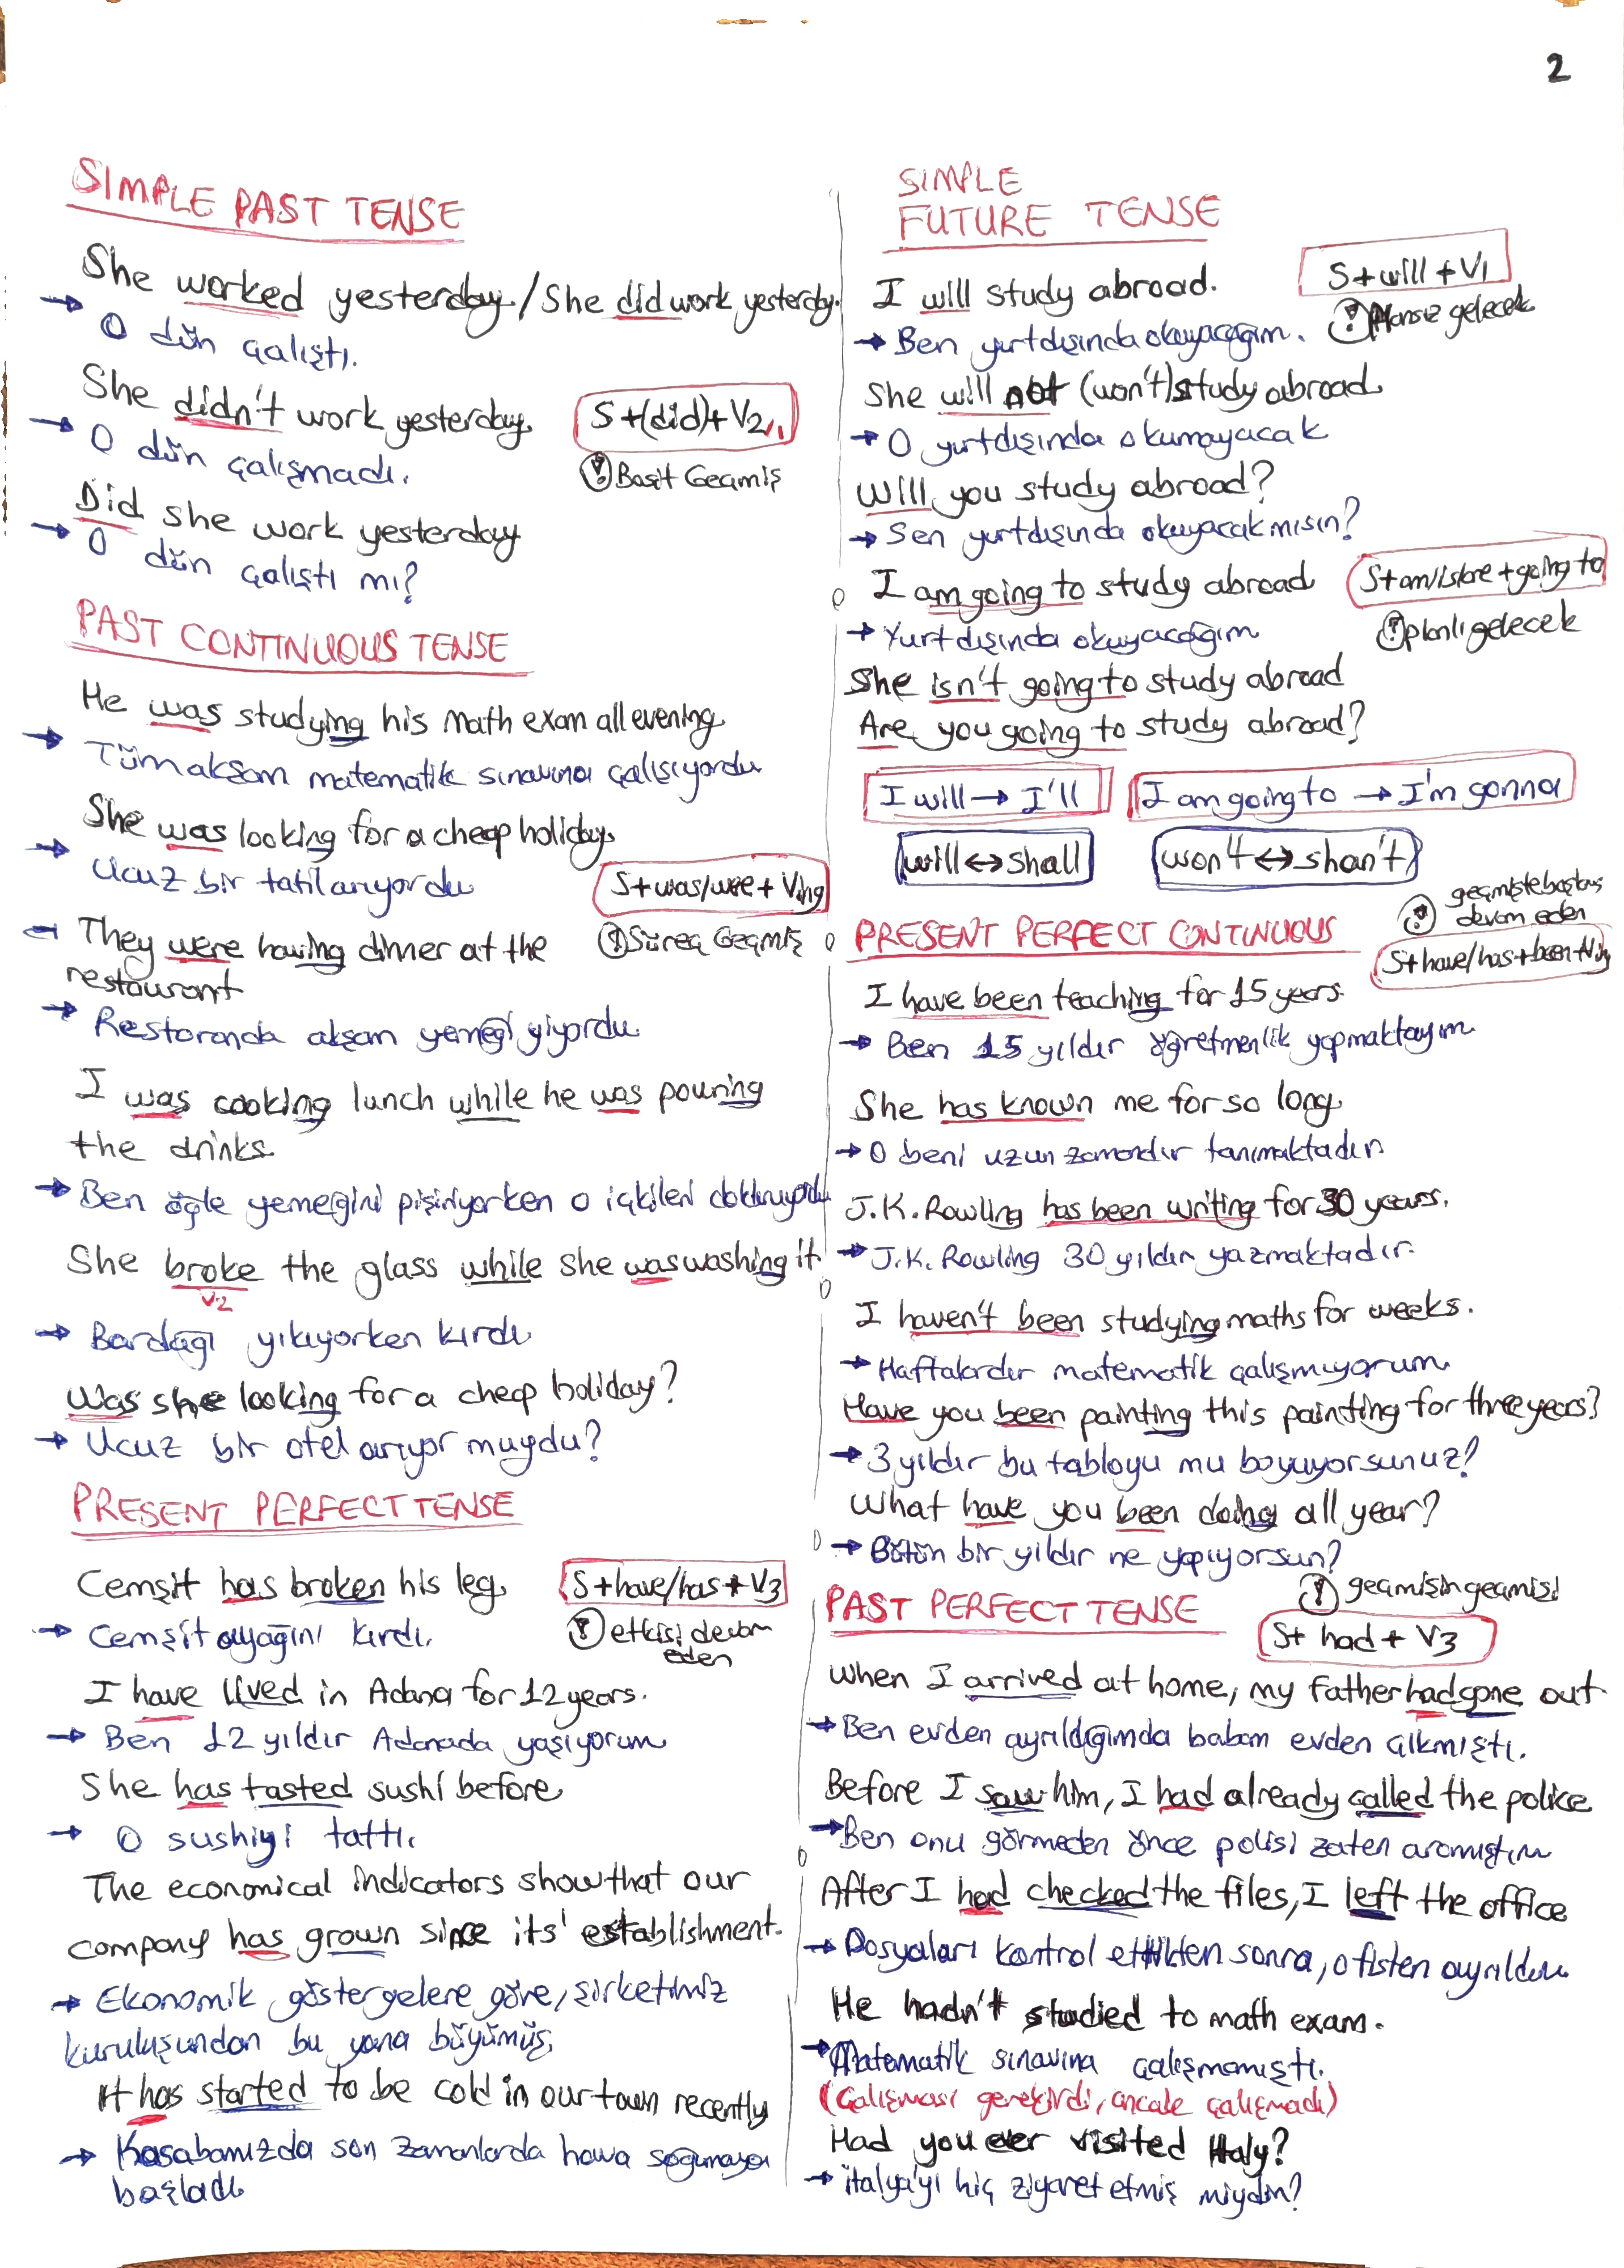 2
SIMPLE PAST TENSE
She worked yesterday / She did work yesterday.
→ O dün çalıştı.
She didn't work yesterday
→ O dün çalışmadı.
S+(did)+V2,1
! Basit Geçmiş
Did she work yesterday
→ O dün çalıştı mı?
PAST CONTINUOUS TENSE
He was studying his math exam all evening
→ Tüm akşam matematik sınavına çalışıyordu
She was looking for a cheap holiday
→ Ucuz bir tatil arıyordu
S+was/were+Ving
! Süreç Geçmiş
They were having dinner at the
restaurant
→ Restoranda akşam yemeği yiyordu
I was cooking lunch while he was pouring
the drinks
→ Ben öğle yemeğini pişiriyorken o içkileri
She broke the glass while she was washing it
V2
→ Bardağı yıkıyorken kırdı
Was she looking for a cheap holiday?
→ Ucuz bir otel arıyor muydu?
PRESENT PERFECT TENSE
Cemşit has broken his leg
→ Cemşit ayağını kırdı.
S+have/has+V3
! etkisi devam
eden
I have lived in Adana for 12 years.
→ Ben 12 yıldır Adanada yaşıyorum
She has tasted sushi before
→ O sushiyi tattı.
The economical indicators show that our
company has grown since its' establishment.
→ Ekonomik göstergelere göre, şirketimiz
kuruluşundan bu yana büyümüş
It has started to be cold in our town recently
→ Kasabamızda son zamanlarda hava soğumaya
başladı
SIMPLE
FUTURE TENSE
I will study abroad.
→ Ben yurtdışında okuyacağım.
S+will+V1
! Plansız gelecek
She will not (won't) study abroad
→ O yurtdışında okumayacak
Will you study abroad?
→ Sen yurtdışında okuyacakmısın?
I am going to study abroad
→ Yurtdışında okuyacağım
S+am/is/are+going to
! planlı gelecek
She isn't going to study abroad
Are you going to study abroad?
I will → I'll
I am going to → I'm gonna
will ↔ shall
won't ↔ shan't
PRESENT PERFECT CONTINUOUS
! geçmişte
devam eden
S+have/has+been+Ving
I have been teaching for 15 years
→ Ben 15 yıldır öğretmenlik yapmaktayım
She has known me for so long
→ O beni uzun zamandır tanımaktadır
J.K. Rowling has been writing for 30 years.
→ J.K. Rowling 30 yıldır yazmaktadır.
I haven't been studying maths for weeks.
→ Haftalardır matematik çalışmıyorum
Have you been painting this painting for three years?
→ 3 yıldır bu tabloyu mu boyuyorsunuz?
What have you been doing all year?
→ Bütün bir yıldır ne yapıyorsun?
PAST PERFECT TENSE
! geçmişin geçmişi
S+ had + V3
When I arrived at home, my father had gone out
→ Ben evden ayrıldığımda babam evden çıkmıştı.
Before I saw him, I had already called the police
→ Ben onu görmeden önce polisi zaten aramıştım
After I had checked the files, I left the office
→ Dosyaları kontrol ettikten sonra, ofisten ayrıldım
He hadn't studied to math exam.
→ Matematik sınavına çalışmamıştı.
(Çalışması gerekirdi, ancak çalışmadı)
Had you ever visited Italy?
→ italya'yı hiç ziyaret etmiş miydin?